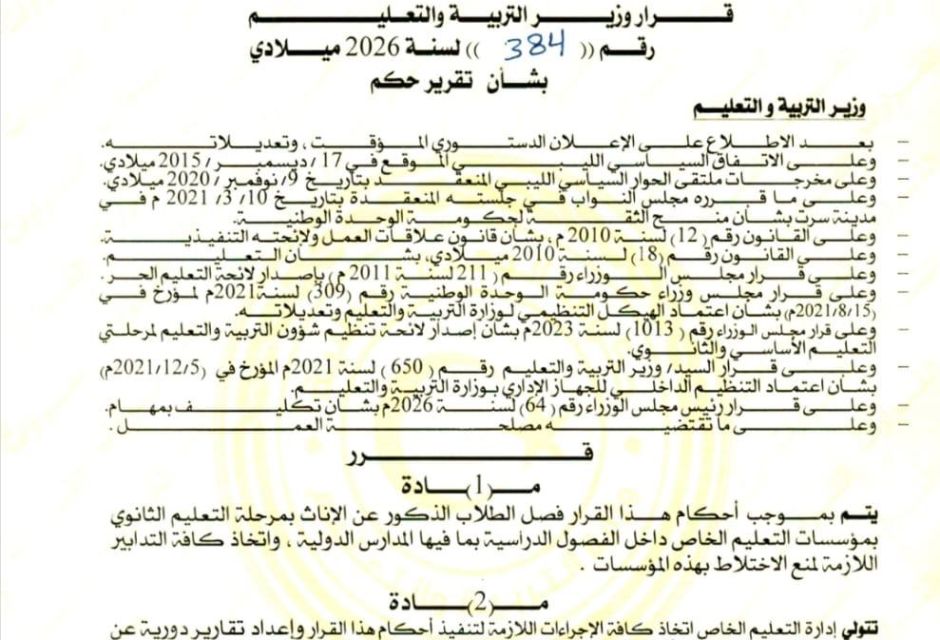 قرار وزير التربية والتعليم
رقم (( 384 )) لسنة 2026 ميلادي
بشأن تقرير حكم
وزير التربية و التعليم
- بعد الاطلاع على الإعلان الدستوري المؤقت ، وتعديلاته.
- وعلى الاتفاق السياسي الليبي الموقع في 17 / ديسمبر / 2015 ميلادي.
- وعلى مخرجات ملتقى الحوار السياسي الليبي المنعقد بتاريخ 9/ نوفمبر / 2020 ميلادي.
- وعلى ما قرره مجلس النواب في جلسته المنعقدة بتاريخ 10/ 3/ 2021 م في
مدينة سرت بشأن منح الثقة لحكومة الوحدة الوطنية.
- وعلى القانون رقم (12) لسنة 2010 م ، بشأن قانون علاقات العمل ولائحته التنفيذية.
- وعلى القانون رقم (18) لسنة 2010 ميلادي، بشأن التعليم.
- وعلى قرار مجلس الوزراء رقم ( 211 لسنة 2011 م ) بإصدار لائحة التعليم الحر .
- وعلى قرار مجلس وزراء حكومة الوحدة الوطنية رقم (309) لسنة 2021م المؤرخ في
(2021/8/15م) بشأن اعتماد الهيكل التنظيمي لوزارة التربية والتعليم وتعديلاته.
- وعلى قرار مجلس الوزراء رقم (1013) لسنة 2023م بشأن إصدار لائحة تنظيم شؤون التربية والتعليم لمرحلتي
التعليم الأساسي والثانوي.
- وعلى قرار السيد/ وزير التربية والتعليم رقم ( 650 ) لسنة 2021م المؤرخ في (2021/12/5م)
بشأن اعتماد التنظيم الداخلي للجهاز الإداري بوزارة التربية والتعليم.
- وعلى قرار رئيس مجلس الوزراء رقم (64) لسنة 2026م بشأن تكليف بمهام.
- وعلى ما تقتضيه مصلحة العمل .
قرر
مادة (1)
يتم بموجب أحكام هذا القرار فصل الطلاب الذكور عن الإناث بمرحلة التعليم الثانوي
بمؤسسات التعليم الخاص داخل الفصول الدراسية بما فيها المدارس الدولية ، واتخاذ كافة التدابير
اللازمة لمنع الاختلاط بهذه المؤسسات .
مادة (2)
تتولى إدارة التعليم الخاص اتخاذ كافة الإجراءات اللازمة لتنفيذ أحكام هذا القرار وإعداد تقارير دورية عن